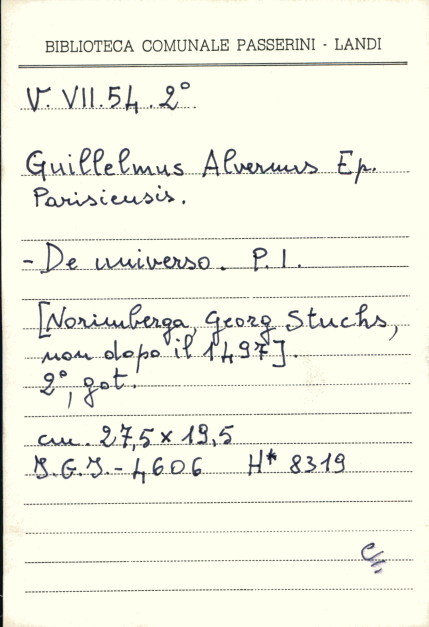 BIBLIOTECA COMUNALE PASSERINI - LANDI
V. VII.54.2°
Guillelmus Alvernus Ep.
Parisiensis.
- De universo. P.I.
[Norimberga, Georg Stuchs,
non dopo il 1497].
2°, got.
cm. 27,5 x 19,5
I.G.I. - 4606 H* 8319